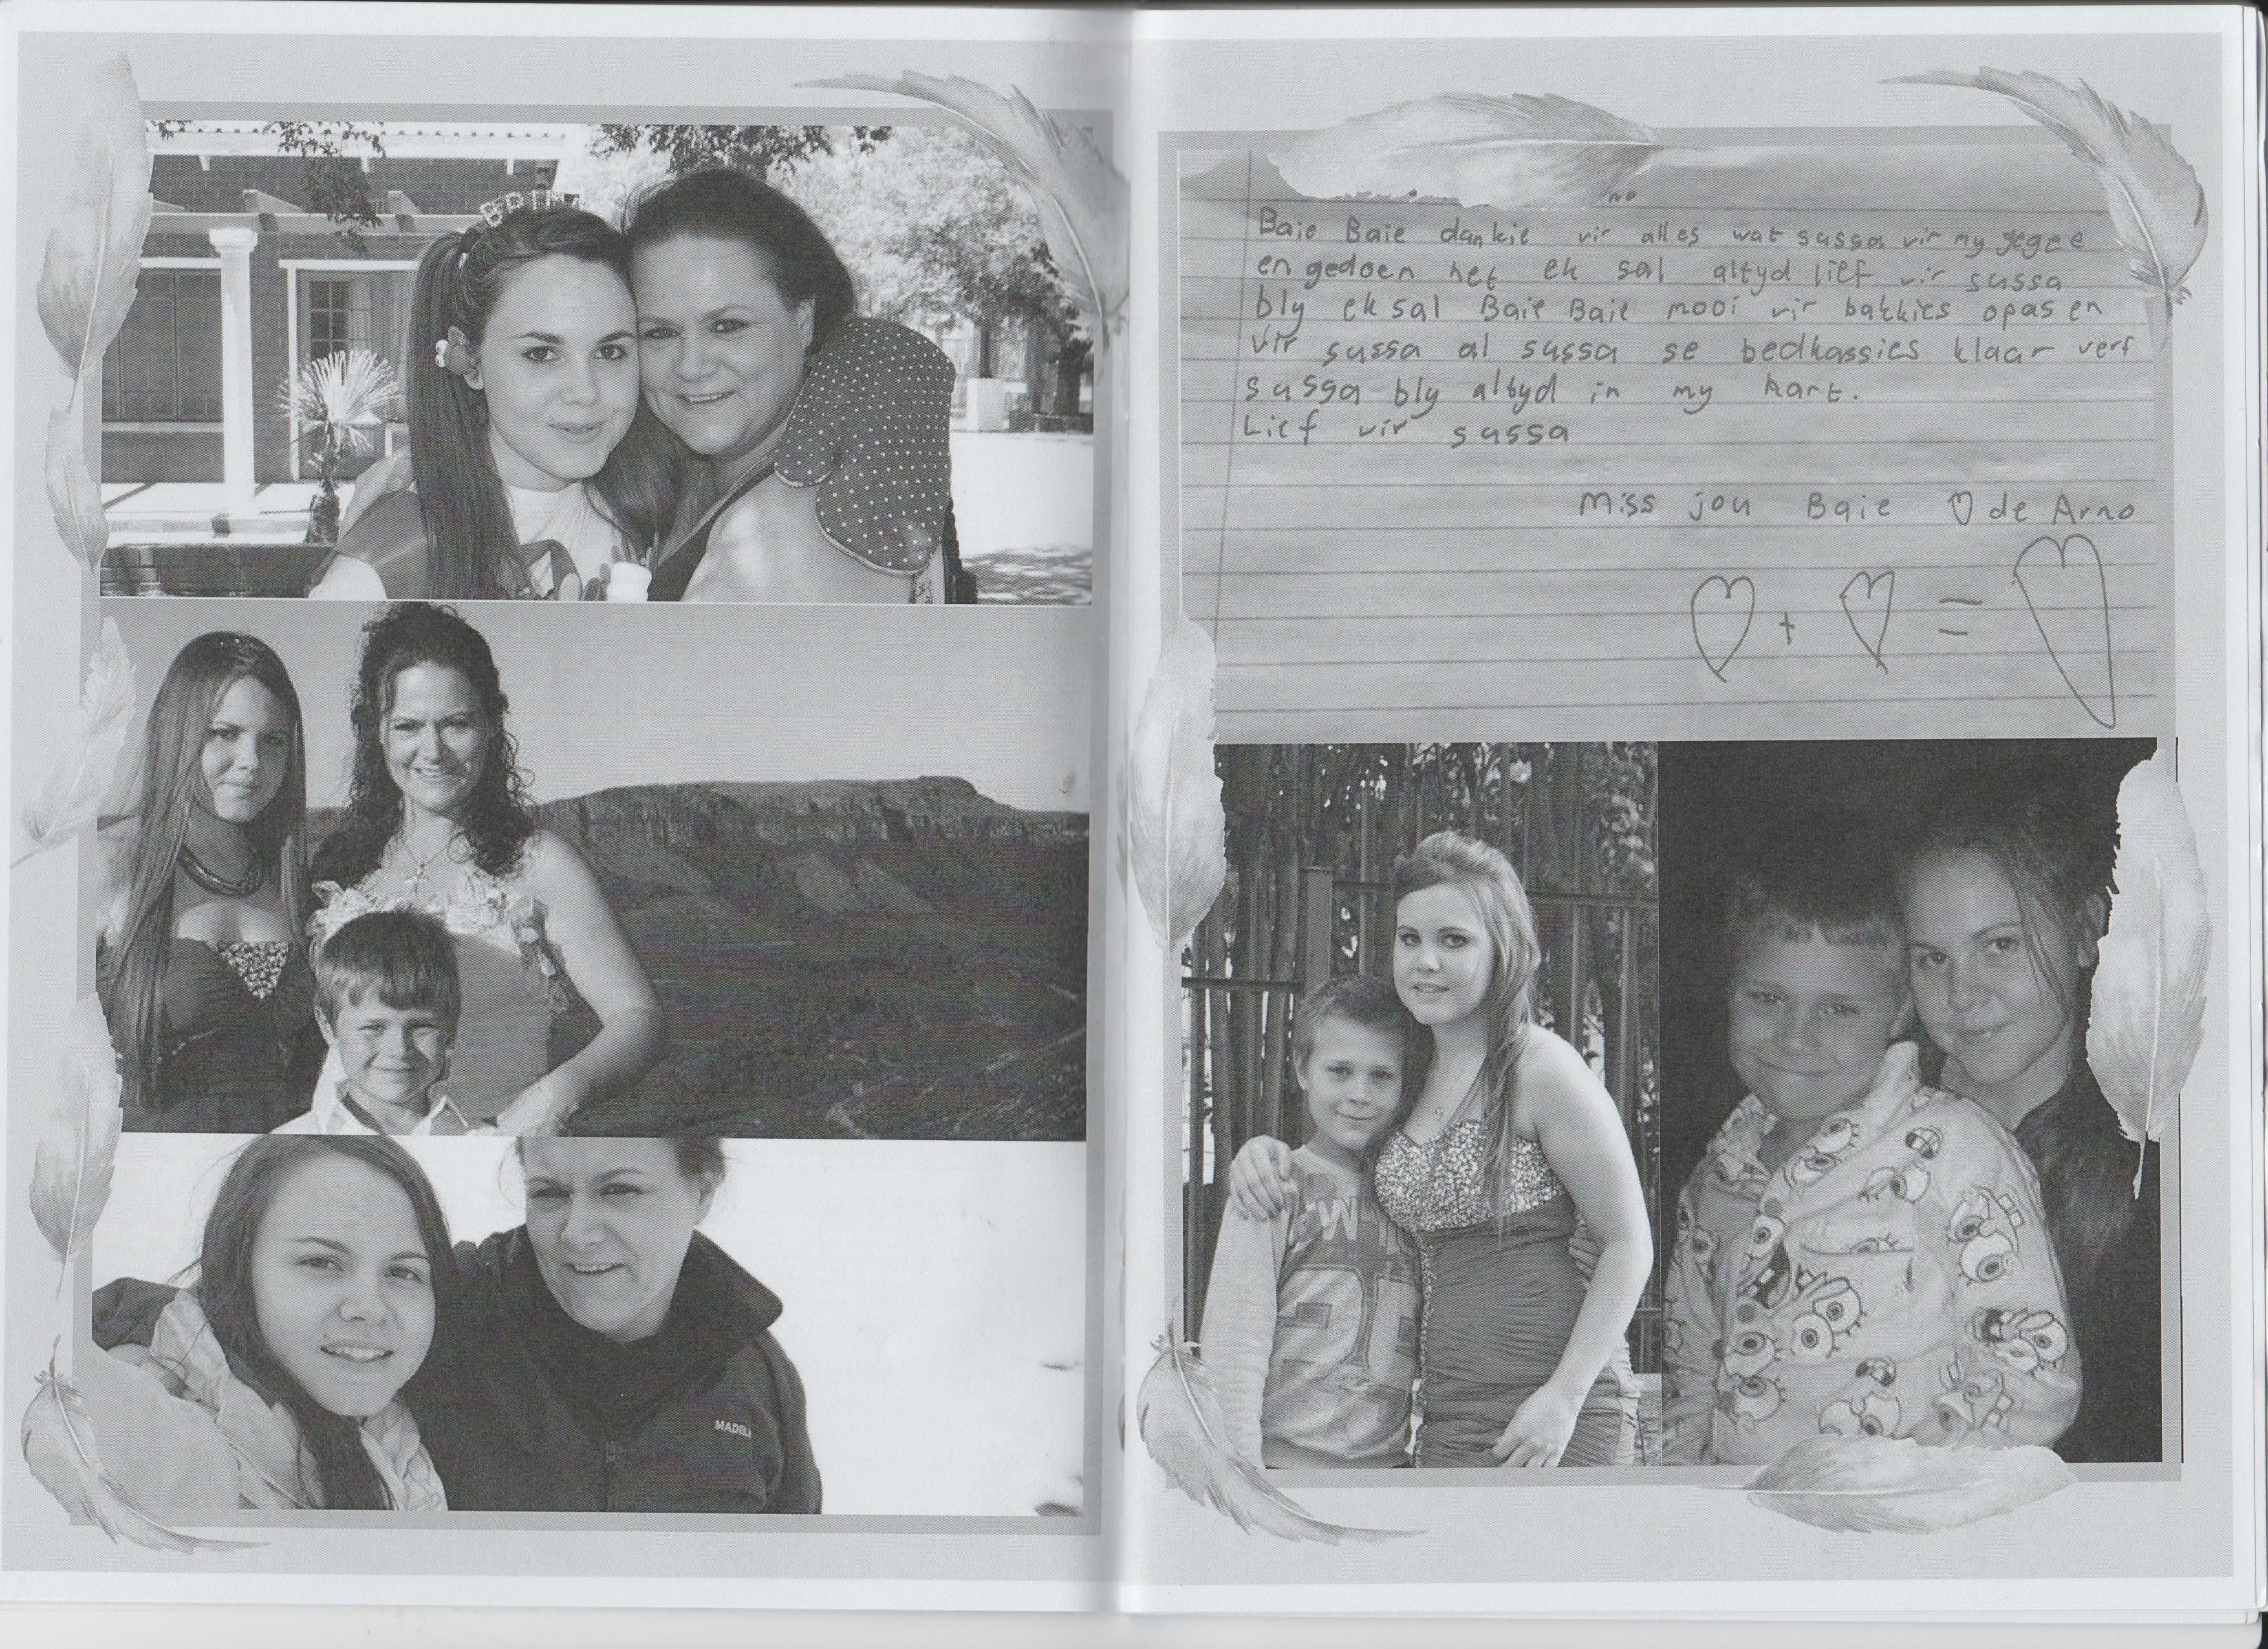 BRIDE
MADELI
no
Baie Baie dankie vir alles wat sussa vir my gegee
en gedoen het ek sal altyd lief vir sussa
bly ek sal Baie Baie mooi vir bakkies opas en
vir sussa al sussa se bedkassies klaar verf
sussa bly altyd in my hart.
Lief vir sussa
Miss jou Baie ♡ de Arno
+ =